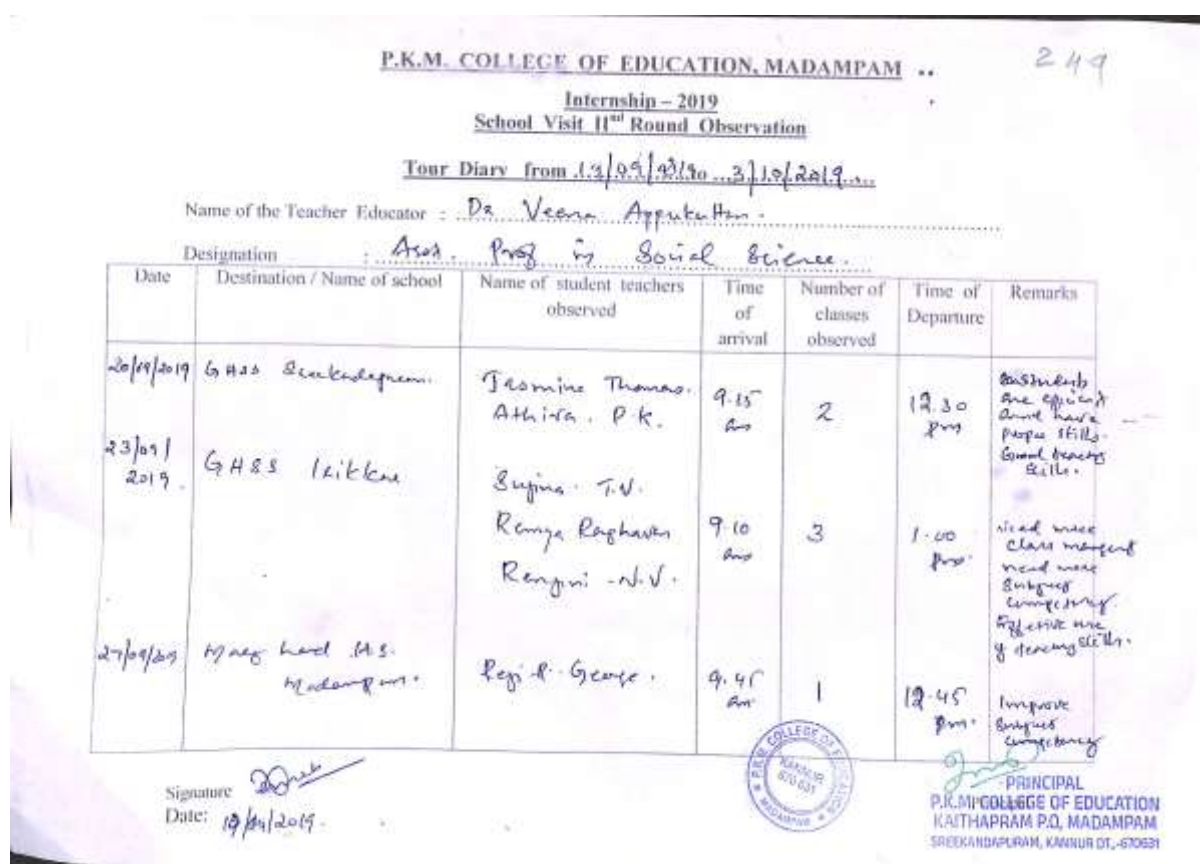 249
P.K.M. COLLEGE OF EDUCATION, MADAMPAM ..
Internship – 2019
School Visit IInd Round Observation
Tour Diary from to 3/10/2019
Name of the Teacher Educator : Dr Veena Appukuttan.
Designation : Prof in Social Science.
Date Destination / Name of school Name of student teachers observed Time of arrival Number of classes observed Time of Departure Remarks
20/09/2019 GHSS Jasmine Thomas. Athira. P.K. 9.15 am 2 12.30 pm are efficient and have skills. Good skills.
23/09/2019. GHSS Irikkur T.V. Remya Raghavan N.V. 9.10 am 3 1.00 pm. need more class need more Effective use of teaching skills.
H.S. Madampam. Reji George. 9.45 am 1 12.45 pm. Improve
Signature
Date: 2019.
P.K.M. COLLEGE OF EDUCATION
KANNUR
670 631
MADAMPAM
PRINCIPAL
P.K.M COLLEGE OF EDUCATION
KAITHAPRAM P.O, MADAMPAM
SREEKANDAPURAM, KANNUR DT,-670631